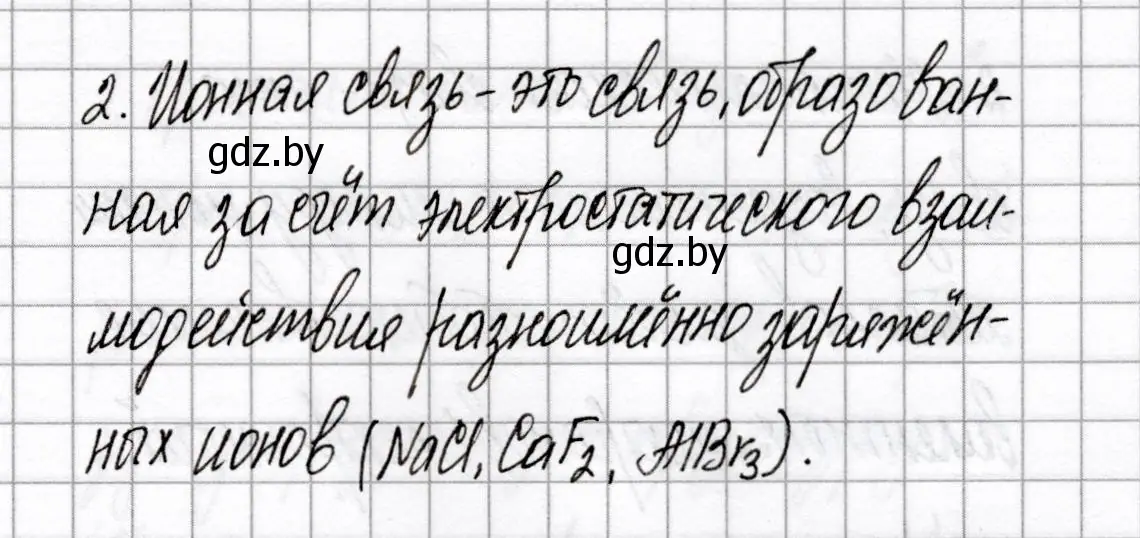 2. Ионная связь - это связь, образован-
gdz.by
ная за счёт электростатического взаи-
gdz.by
модействия разноимённо заряжён-
ных ионов (NaCl, CaF₂, AlBr₃).